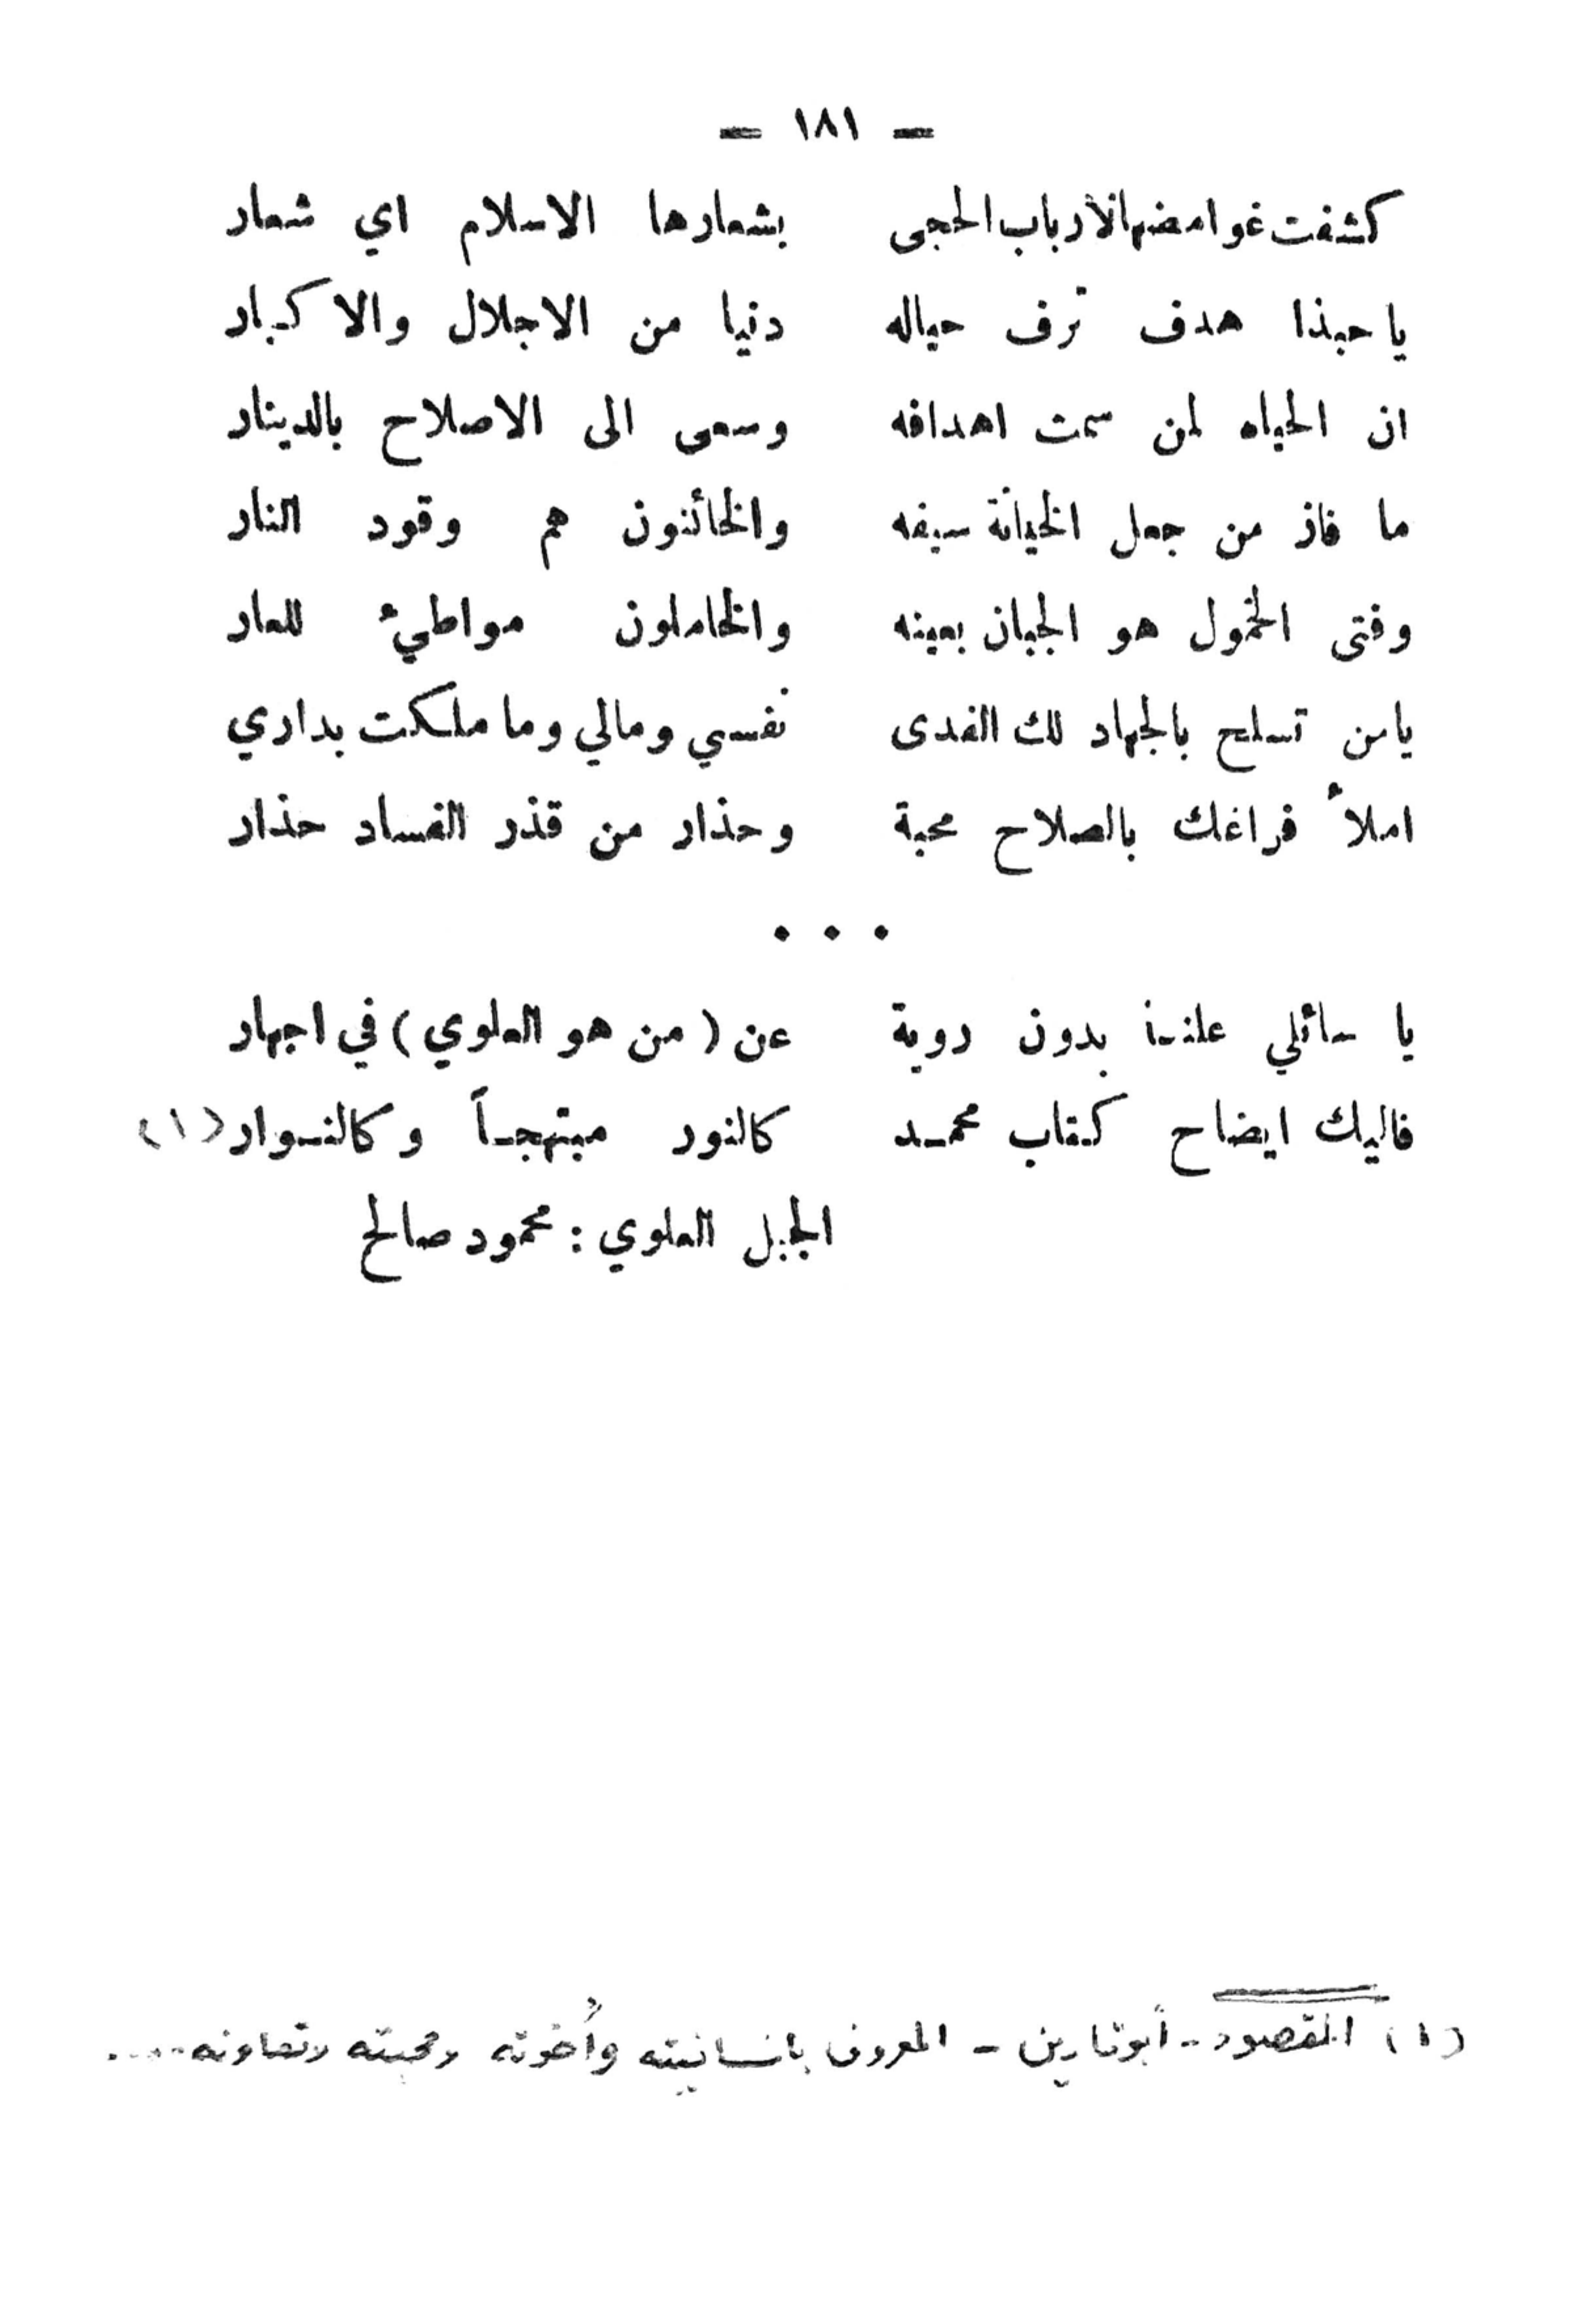 — ١٨١ —
كشفت غوامضها لأرباب الحجى بشعارها الاسلام اي شعار
يا حبذا هدف ترف حياله دنيا من الاجلال والاكبار
ان الحياه لمن سمت اهدافه وسعى الى الاصلاح بالدينار
ما فاز من جعل الخيانة سيفه والخائنون هم وقود النار
وفتى الخمول هو الجبان بعينه والخاملون مواطيء للعار
يامن تسلح بالجهاد لك الفدى نفسي ومالي وما ملكت بداري
املأ فراغك بالصلاح محبة وحذار من قذر الفساد حذار
• • •
يا سائلي علناً بدون روية عن (من هو العلوي) في اجهار
فاليك ايضاح كتاب محمد كالنور مبتهجاً وكالنوار (١)
الجبل العلوي : محمود صالح
(١) المقصود - أبو تارين - المعروف بانسانيته وأخوته ومحبته وتعاونه ....